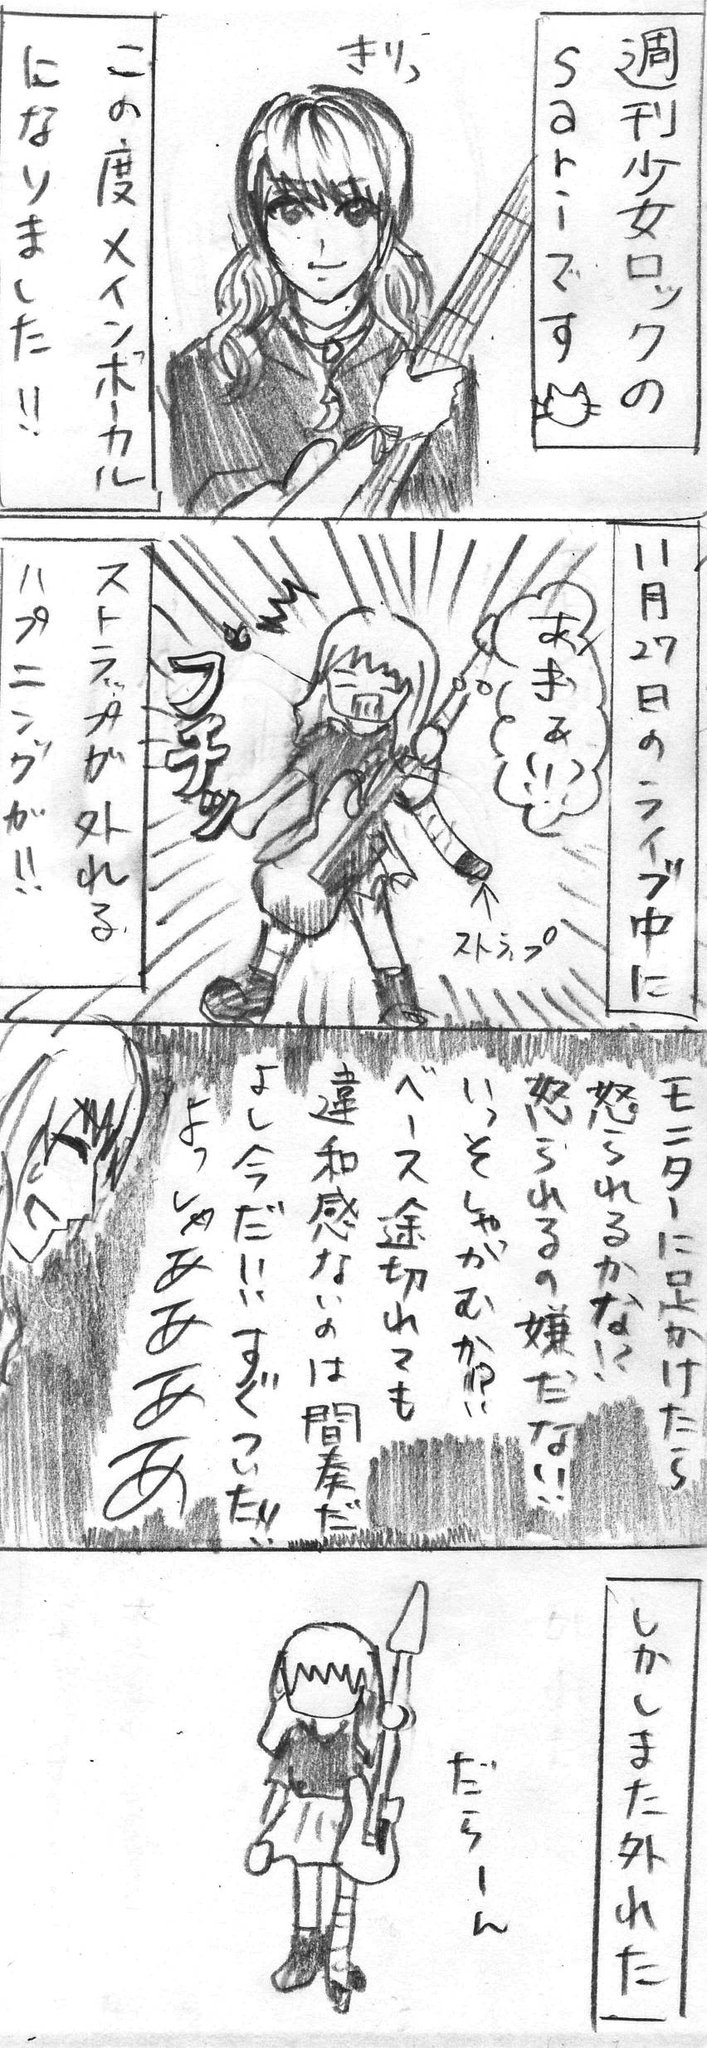 週刊少女ロックの
sariーです
きりっ
この度メインボーカル
になりました!!
11月27日のライブ中に
あまぁい!!
ストラップ
ブチッ
ストラップが外れる
ハプニングが!!
モニターに足かけたら
怒られるかな!?
怒られるの嫌だな!!
いっそしゃがむか!?
ベース途切れても
違和感ないのは間奏だ
よし今だ!!すぐついた!!
よっしゃああああ
しかしまた外れた
だらーん